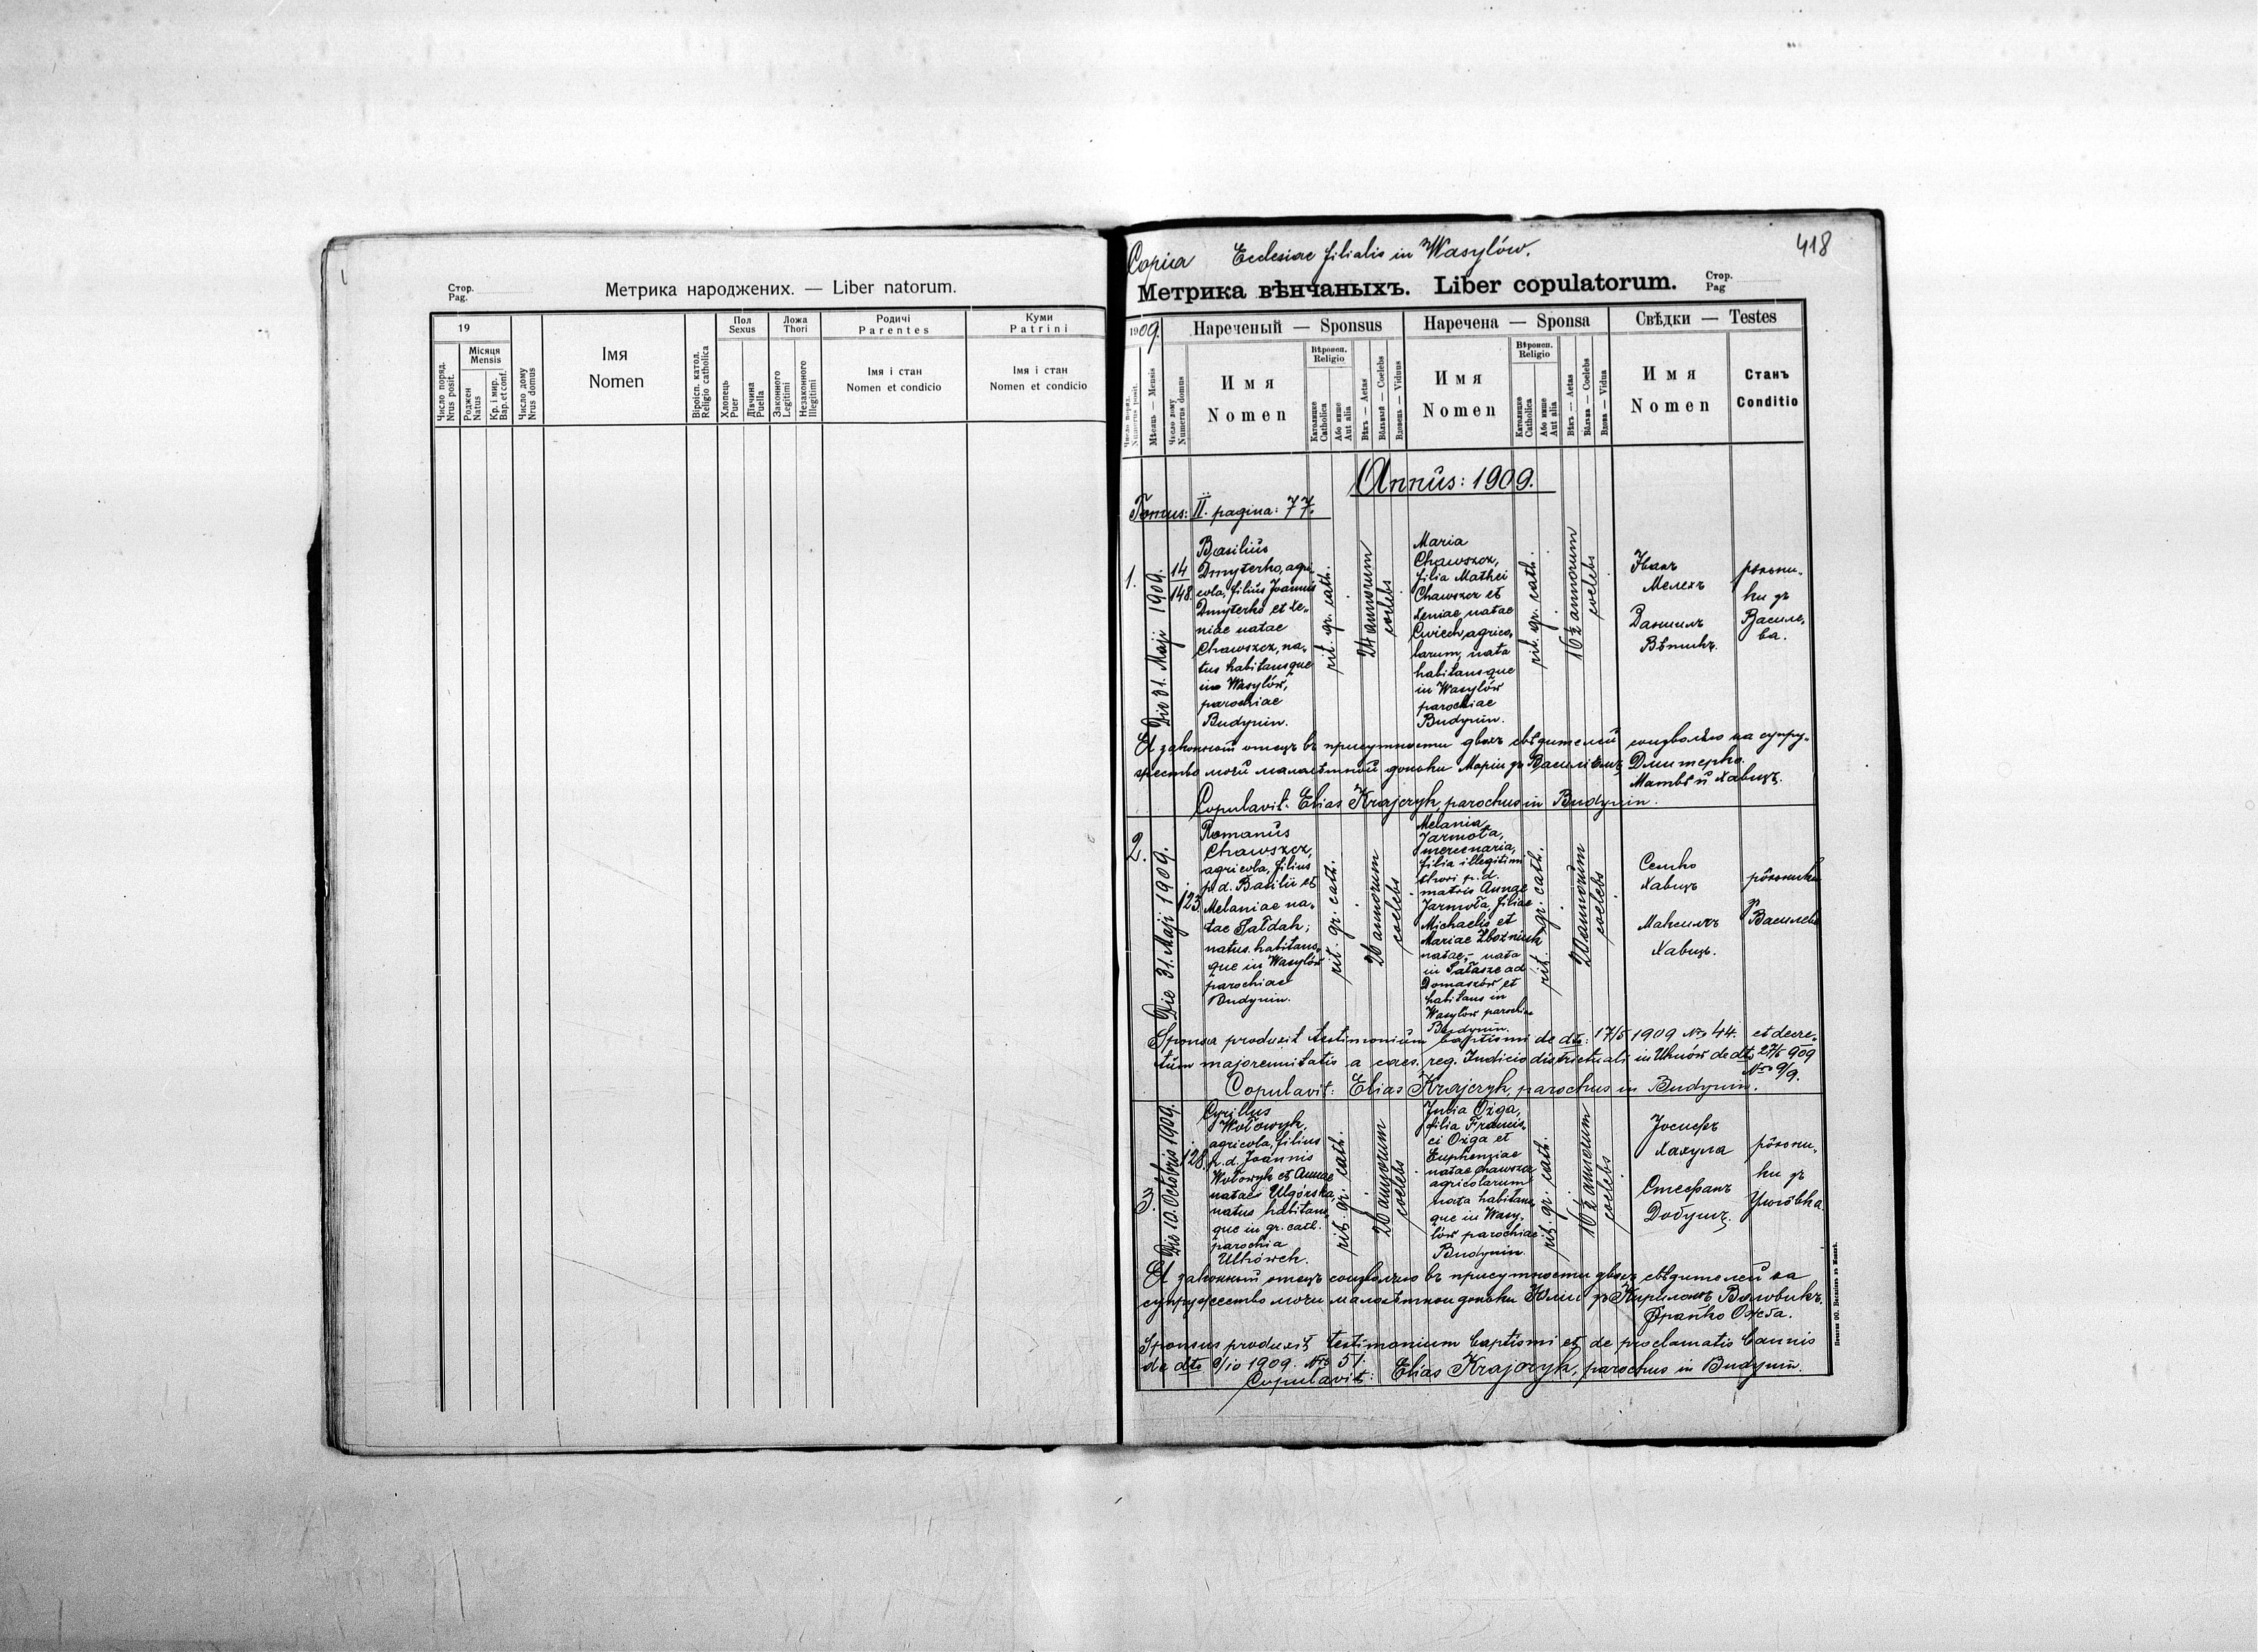 Стор.
Pag.
Метрика народжених. — Liber natorum.
19
Число поряд.
Nrus posit.
Місяця
Mensis
Роджен
Natus
Кр. і мир.
Bap. et conf.
Число дому
Nrus domus
Імя
Nomen
Віроісп. катол.
Religio catholica
Пол
Sexus
Хлопець
Puer
Дівчина
Puella
Ложа
Thori
Законного
Legitimi
Незаконного
Illegitimi
Родичі
Parentes
Імя і стан
Nomen et condicio
Куми
Patrini
Імя і стан
Nomen et condicio
418
Copia Ecclesiae filialis in Wasylów.
Метрика вѣнчаныхъ. Liber copulatorum.
Стор.
Pag
1909.
Число поряд.
Numerus posit.
Мѣсяць — Mensis
Число дому
Numerus domus
Нареченый — Sponsus
Имя
Nomen
Вѣроисп.
Religio
Католицке
Catholica
Або инше
Aut alia
Вѣкъ — Aetas
Вôльный — Coelebs
Вдовець — Viduus
Наречена — Sponsa
Имя
Nomen
Вѣроисп.
Religio
Католицке
Catholica
Або инше
Aut alia
Вѣкъ — Aetas
Вôльна — Coelebs
Вдова — Vidua
Свѣдки — Testes
Имя
Nomen
Станъ
Conditio
Annus: 1909.
Tomus: II. pagina: 77.
1.
Die 31. Maji 1909.
14
148.
Basilius
Dmyterko, agri-
cola, filius Joannis
Dmyterko et Xe-
niae natae
Chawszcz, na-
tus habitansque
in Wasylów,
parochiae
Budynin.
rit. gr. cath.
24 annorum
coelebs
Maria
Chawszcz,
filia Mathei
Chawszcz et
Xeniae natae
Cwiech, agrico-
larum, nata
habitansque
in Wasylów
parochiae
Budynin.
rit. gr. cath.
16½ annorum
coelebs
Иванъ
Мелехъ
Данилъ
рôльни-
ки зъ
Василе-
ва.
Я законный отецъ въ присутности двохъ свѣдителей соизволяю на супру-
жество моей малолѣтной доньки Марiи зъ Василiемъ Дмитерко.
Матвѣй Хавщъ.
Copulavit: Elias Krajczyk, parochus in Budynin.
2.
Die 31. Maji 1909.
123.
Romanus
Chawszcz,
agricola, filius
p. d. Basilii et
Melaniae na-
tae Sałdak;
natus habitans-
que in Wasylów
parochiae
Budynin.
rit. gr. cath.
26 annorum
coelebs
Melania
Jarmoła,
mercenaria,
filia illegitimi
thori p. d.
matris Annae
Jarmoła, filiae
Michaelis et
Mariae Zbożniuk
natae, - nata
in Sałasze ad
Domaszów et
habitans in
Wasylów parochiae
Budynin.
rit. gr. cath.
20 annorum
coelebs
Семко
Хавщъ
Максимъ
Хавщъ.
рôльники
зъ
Василева
Sponsa produxit testimonium baptismi de dto: 17/5 1909 Nro 44. et decre-
tum majorennitatis a caes. reg. Judicio districtuali in Uhnów de dto 27/5 909
Nro 9/9.
Copulavit: Elias Krajczyk, parochus in Budynin.
3.
Die 10. Octobris 1909.
128.
Cyrillus
Wołowyk,
agricola, filius
p. d. Joannis
Wołowyk et Annae
natae Ulgórska,
natus habitans-
que in gr. cath.
parochia
Ulhówek.
rit. gr. cath.
26 annorum
coelebs
Julia Ożga,
filia Francis-
ci Ożga et
Euphemiae
natae Chawszcz
agricolarum
nata habitans-
que in Wasy-
lów parochiae
Budynin.
rit. gr. cath.
16½ annorum
coelebs
Iосифъ
Хахула
Стефанъ
Добушъ.
рôльни-
ки зъ
Я законный отецъ соизволяю въ присутности двохъ свѣдителей на
супружество моеи малолѣтнои доньки Юлiи зъ Кириломъ Воловикъ.
Франко Ожґа.
Sponsus produxit testimonium baptismi et de proclamatis bannis
de dto 9/10 1909. Nro 51.
Copulavit: Elias Krajczyk, parochus in Budynin.